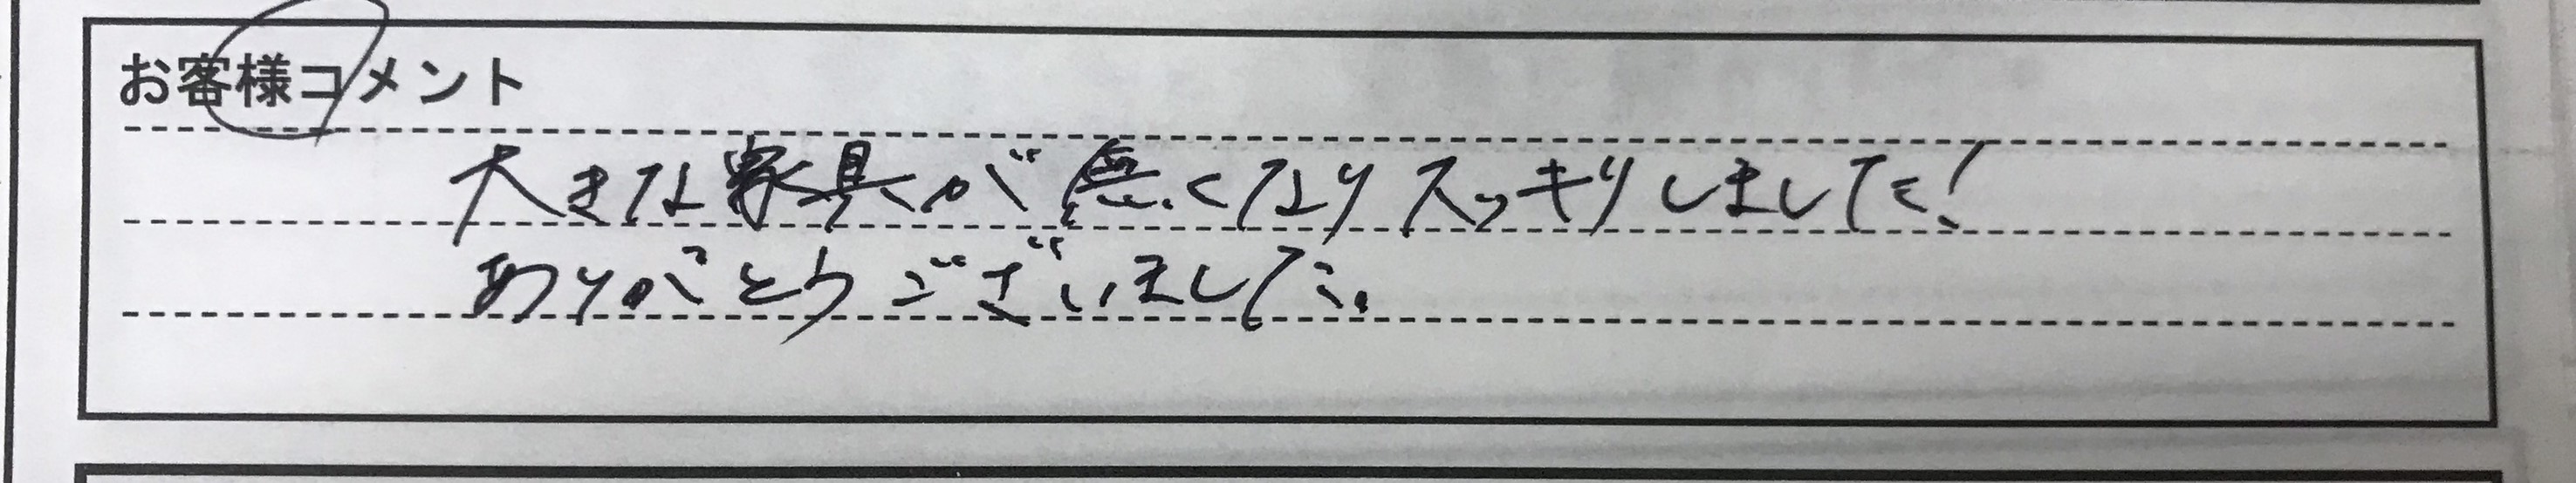 お客様コメント
大きな家具が無くなりスッキリしました!
ありがとうございました。